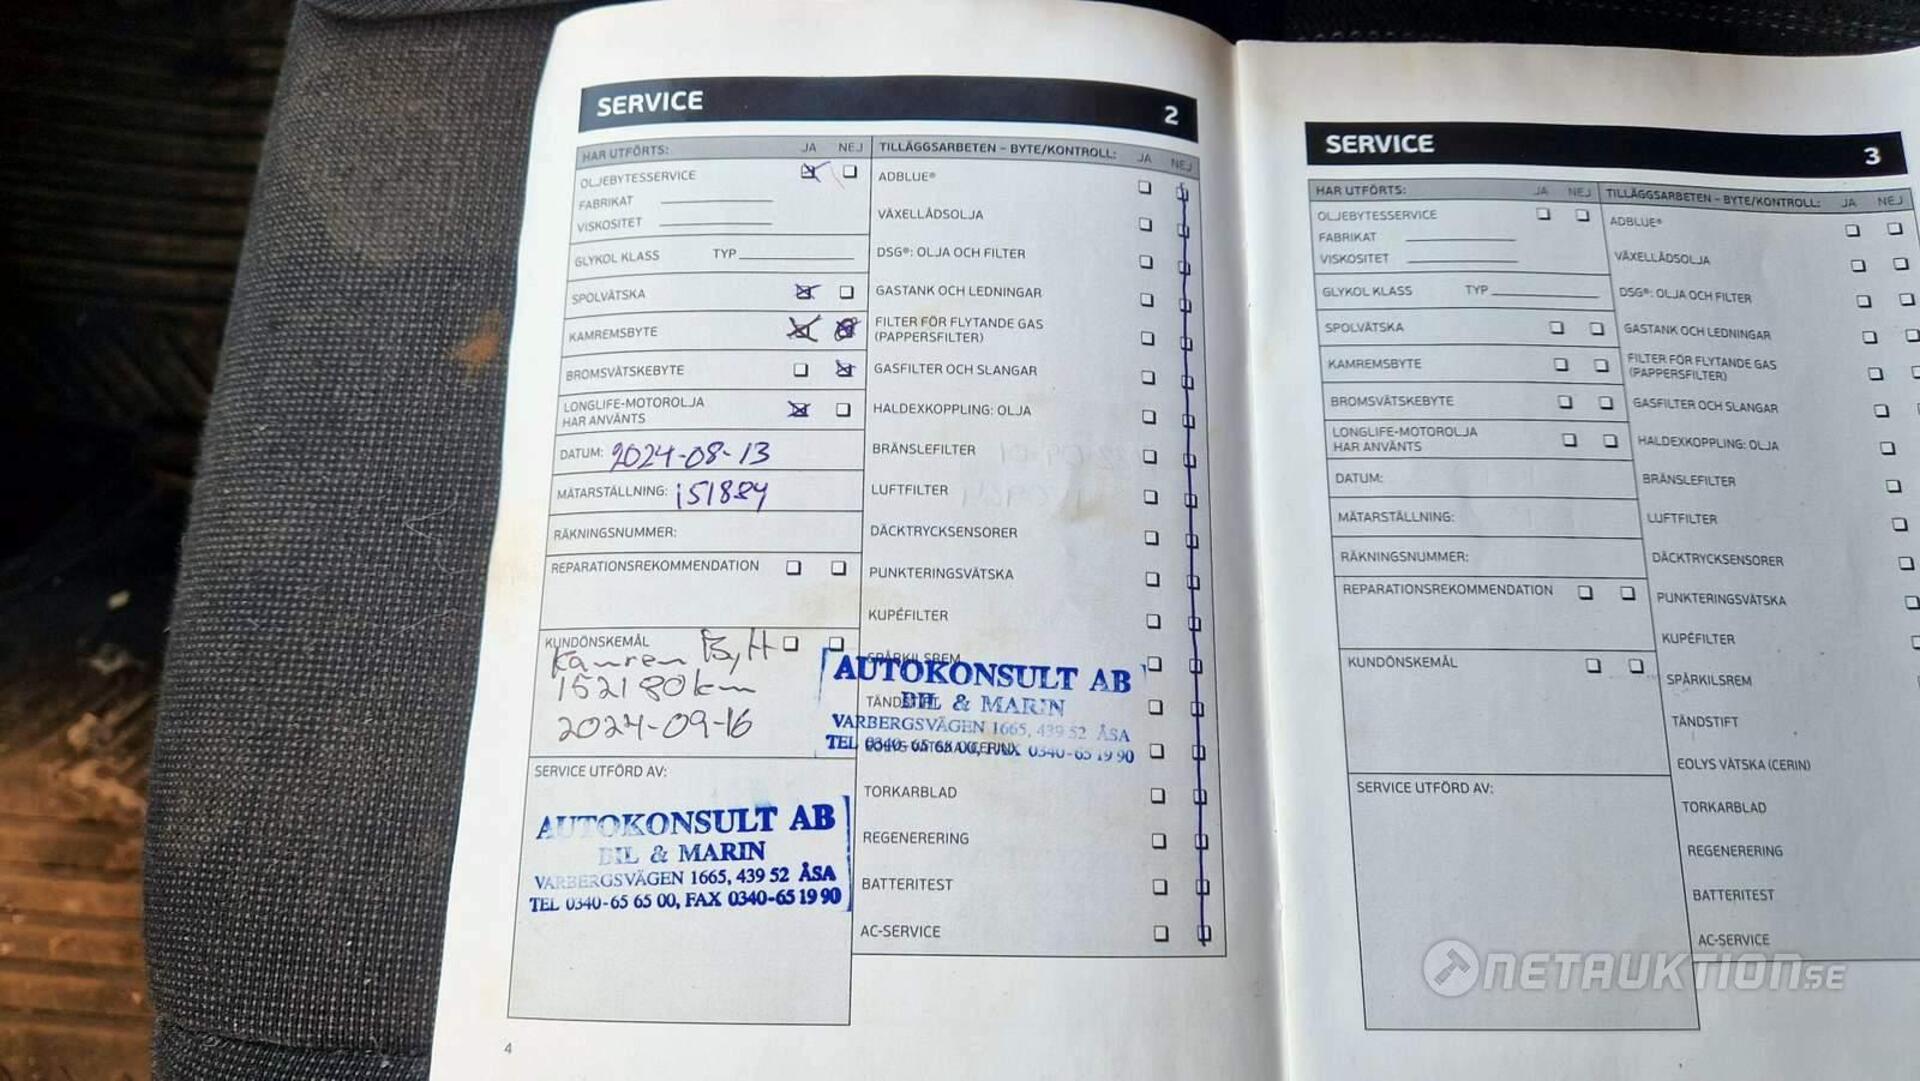 SERVICE 2
HAR UTFÖRTS: JA NEJ
OLJEBYTESSERVICE
FABRIKAT
VISKOSITET
GLYKOL KLASS TYP
SPOLVÄTSKA
KAMREMSBYTE
BROMSVÄTSKEBYTE
LONGLIFE-MOTOROLJA
HAR ANVÄNTS
DATUM: 2024-08-13
MÄTARSTÄLLNING: 151884
RÄKNINGSNUMMER:
REPARATIONSREKOMMENDATION
KUNDÖNSKEMÅL
Kamrem Bytt
152180km
2024-09-16
SERVICE UTFÖRD AV:
AUTOKONSULT AB
BIL & MARIN
VARBERGSVÄGEN 1665, 439 52 ÅSA
TEL 0340-65 65 00, FAX 0340-65 19 90
4
TILLÄGGSARBETEN – BYTE/KONTROLL: JA NEJ
ADBLUE®
VÄXELLÅDSOLJA
DSG®: OLJA OCH FILTER
GASTANK OCH LEDNINGAR
FILTER FÖR FLYTANDE GAS
(PAPPERSFILTER)
GASFILTER OCH SLANGAR
HALDEXKOPPLING: OLJA
BRÄNSLEFILTER
LUFTFILTER
DÄCKTRYCKSENSORER
PUNKTERINGSVÄTSKA
KUPÉFILTER
SPÅRKILSREM
AUTOKONSULT AB
BIL & MARIN
VARBERGSVÄGEN 1665, 439 52 ÅSA
TEL 0340-65 65 00, FAX 0340-65 19 90
TORKARBLAD
REGENERERING
BATTERITEST
AC-SERVICE
SERVICE 3
HAR UTFÖRTS: JA NEJ
OLJEBYTESSERVICE
FABRIKAT
VISKOSITET
GLYKOL KLASS TYP
SPOLVÄTSKA
KAMREMSBYTE
BROMSVÄTSKEBYTE
LONGLIFE-MOTOROLJA
HAR ANVÄNTS
DATUM:
MÄTARSTÄLLNING:
RÄKNINGSNUMMER:
REPARATIONSREKOMMENDATION
KUNDÖNSKEMÅL
SERVICE UTFÖRD AV:
TILLÄGGSARBETEN – BYTE/KONTROLL: JA NEJ
ADBLUE®
VÄXELLÅDSOLJA
DSG®: OLJA OCH FILTER
GASTANK OCH LEDNINGAR
FILTER FÖR FLYTANDE GAS
(PAPPERSFILTER)
GASFILTER OCH SLANGAR
HALDEXKOPPLING: OLJA
BRÄNSLEFILTER
LUFTFILTER
DÄCKTRYCKSENSORER
PUNKTERINGSVÄTSKA
KUPÉFILTER
SPÅRKILSREM
TÄNDSTIFT
EOLYS VÄTSKA (CERIN)
TORKARBLAD
REGENERERING
BATTERITEST
AC-SERVICE
NETAUKTION.SE